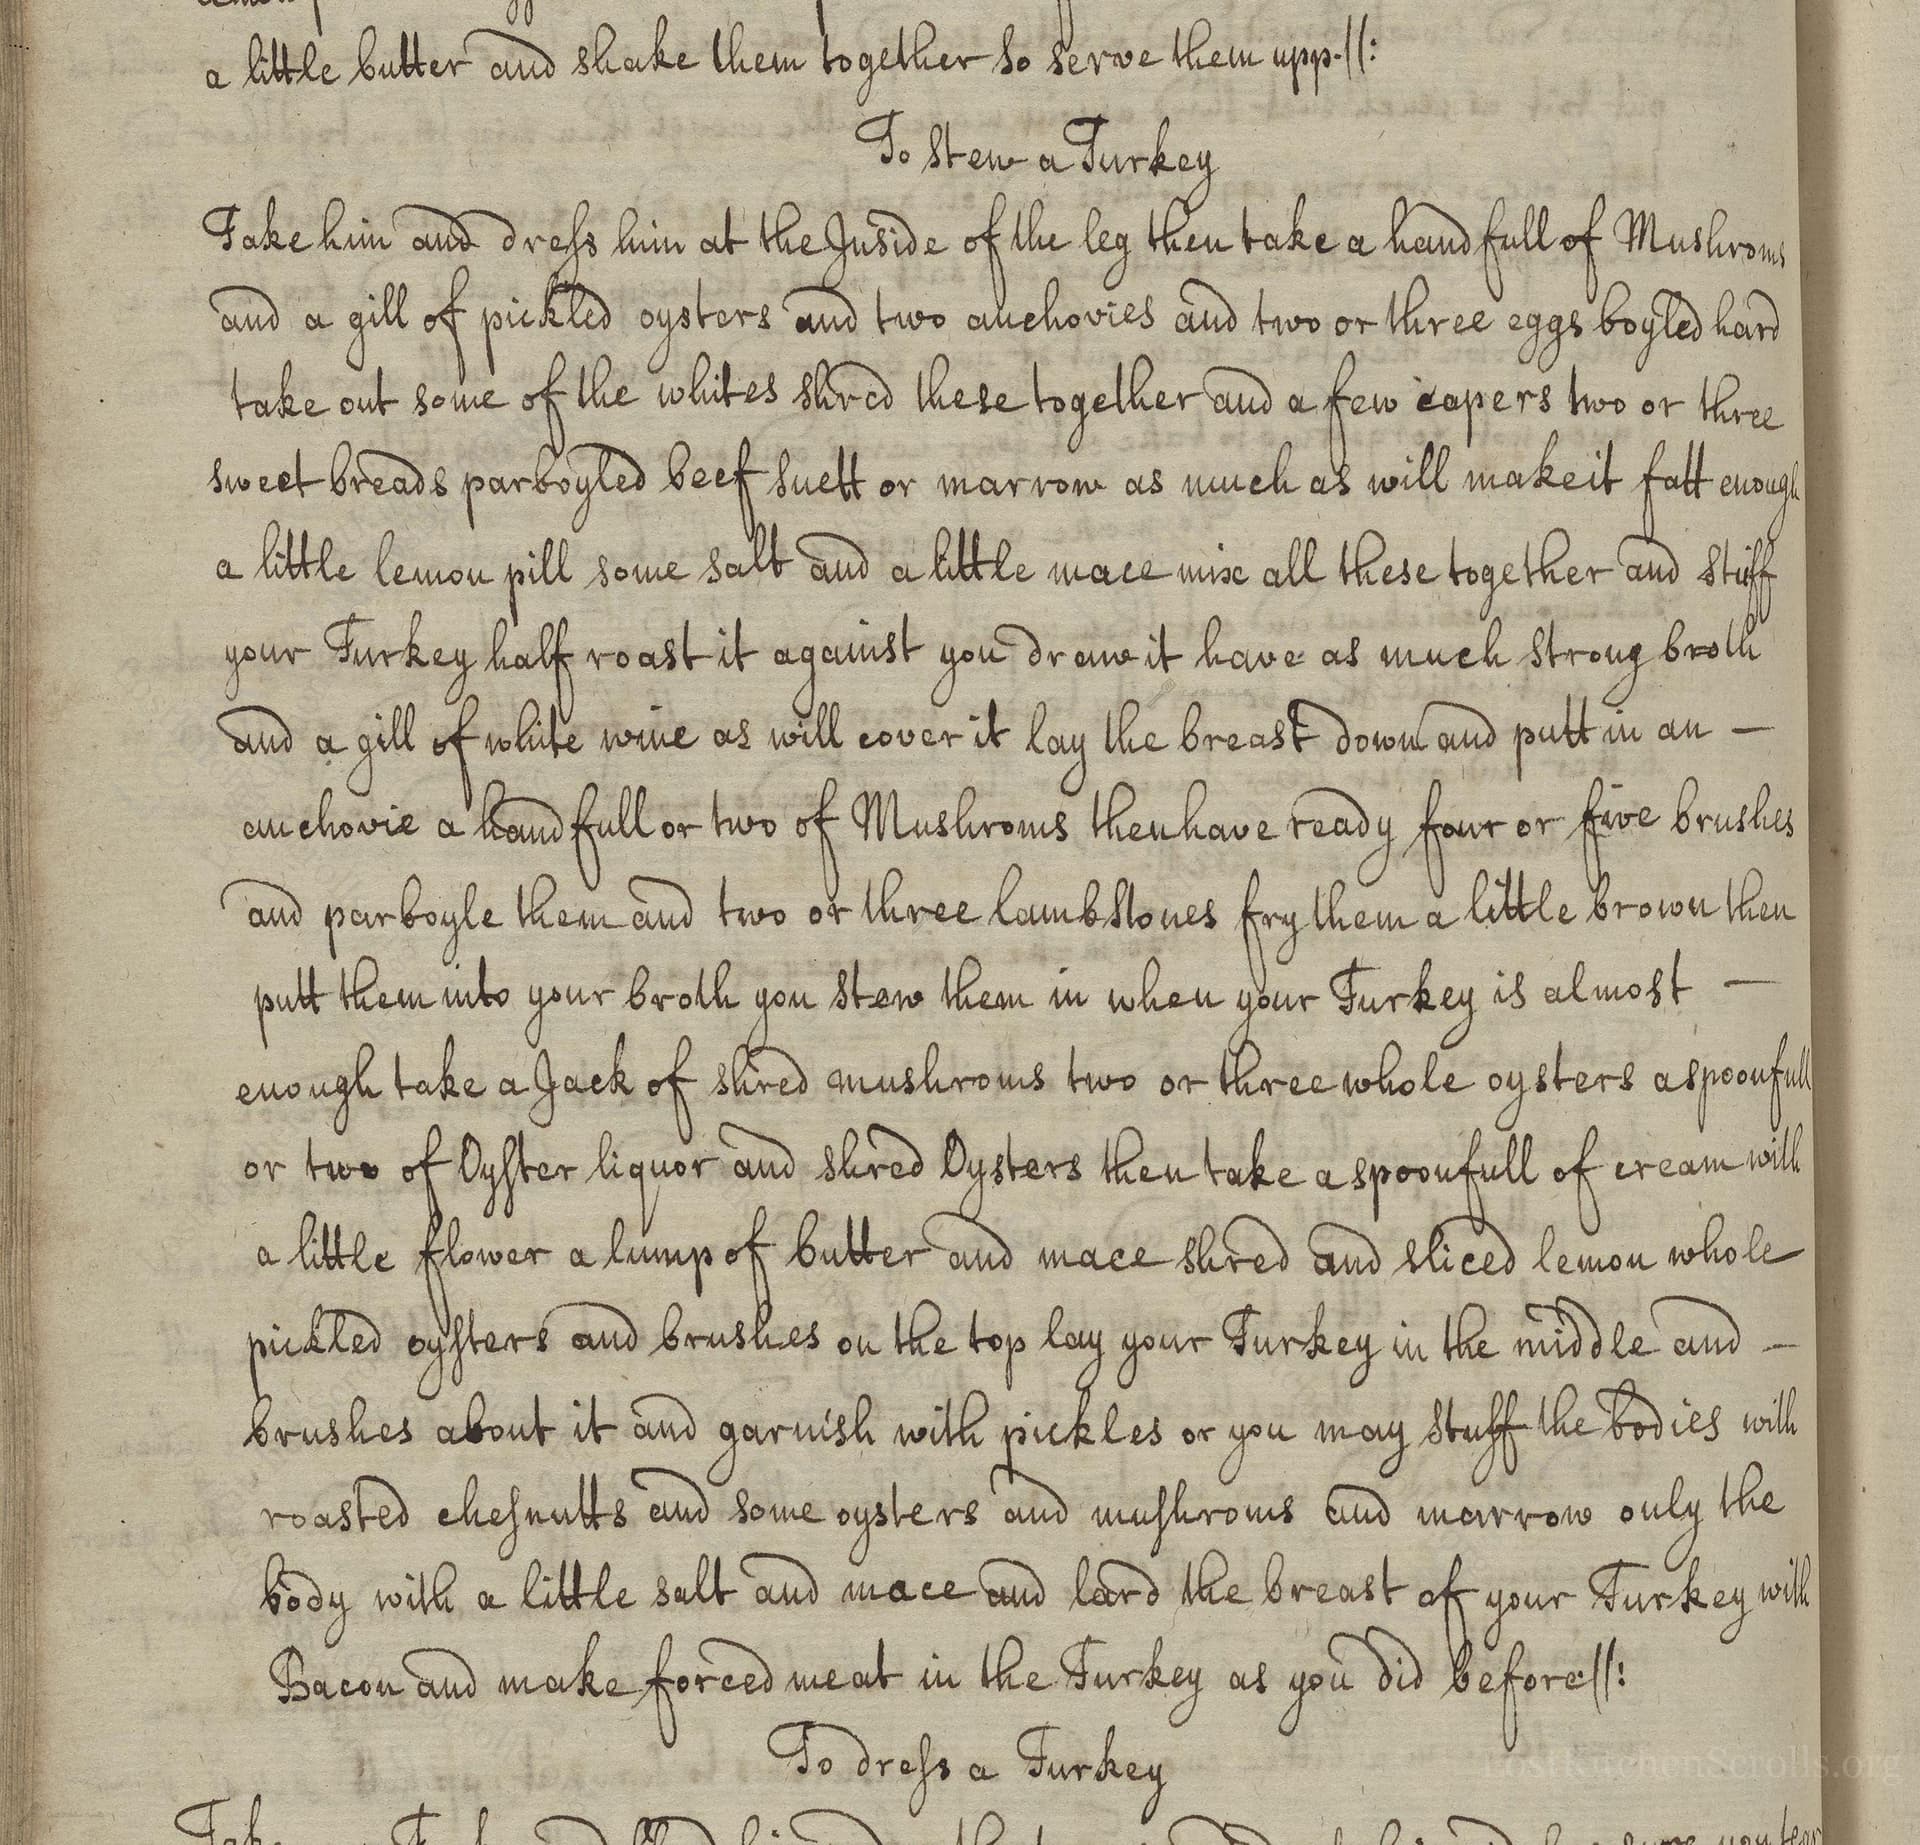 a little butter and shake them together so serve them upp·//:
To stew a Turkey
Take him and dress him at the Inside of the leg then take a handfull of Mushroms
and a gill of pickled oysters and two anchovies and two or three eggs boyled hard
take out some of the whites shred these together and a few capers two or three
sweetbreads parboyled beef suett or marrow as much as will make it fatt enough
a little lemon pill some salt and a little mace mix all these together and stuff
your Turkey half roast it against you draw it have as much strong broth
and a gill of white wine as will cover it lay the breast down and putt in an —
anchovie a handfull or two of Mushroms then have ready four or five brushes
and parboyle them and two or three lambstones fry them a little brown then
putt them into your broth you stew them in when your Turkey is almost —
enough take a Jack of shred mushroms two or three whole oysters a spoonfull
or two of Oyster liquor and shred Oysters then take a spoonfull of cream with
a little flower a lump of butter and mace shred and sliced lemon whole
pickled oysters and brushes on the top lay your Turkey in the middle and —
brushes about it and garnish with pickles or you may stuff the bodies with
roasted chesnutts and some oysters and mushroms and marrow only the
body with a little salt and mace and lard the breast of your Turkey with
Bacon and make forced meat in the Turkey as you did before·//:
To dress a Turkey